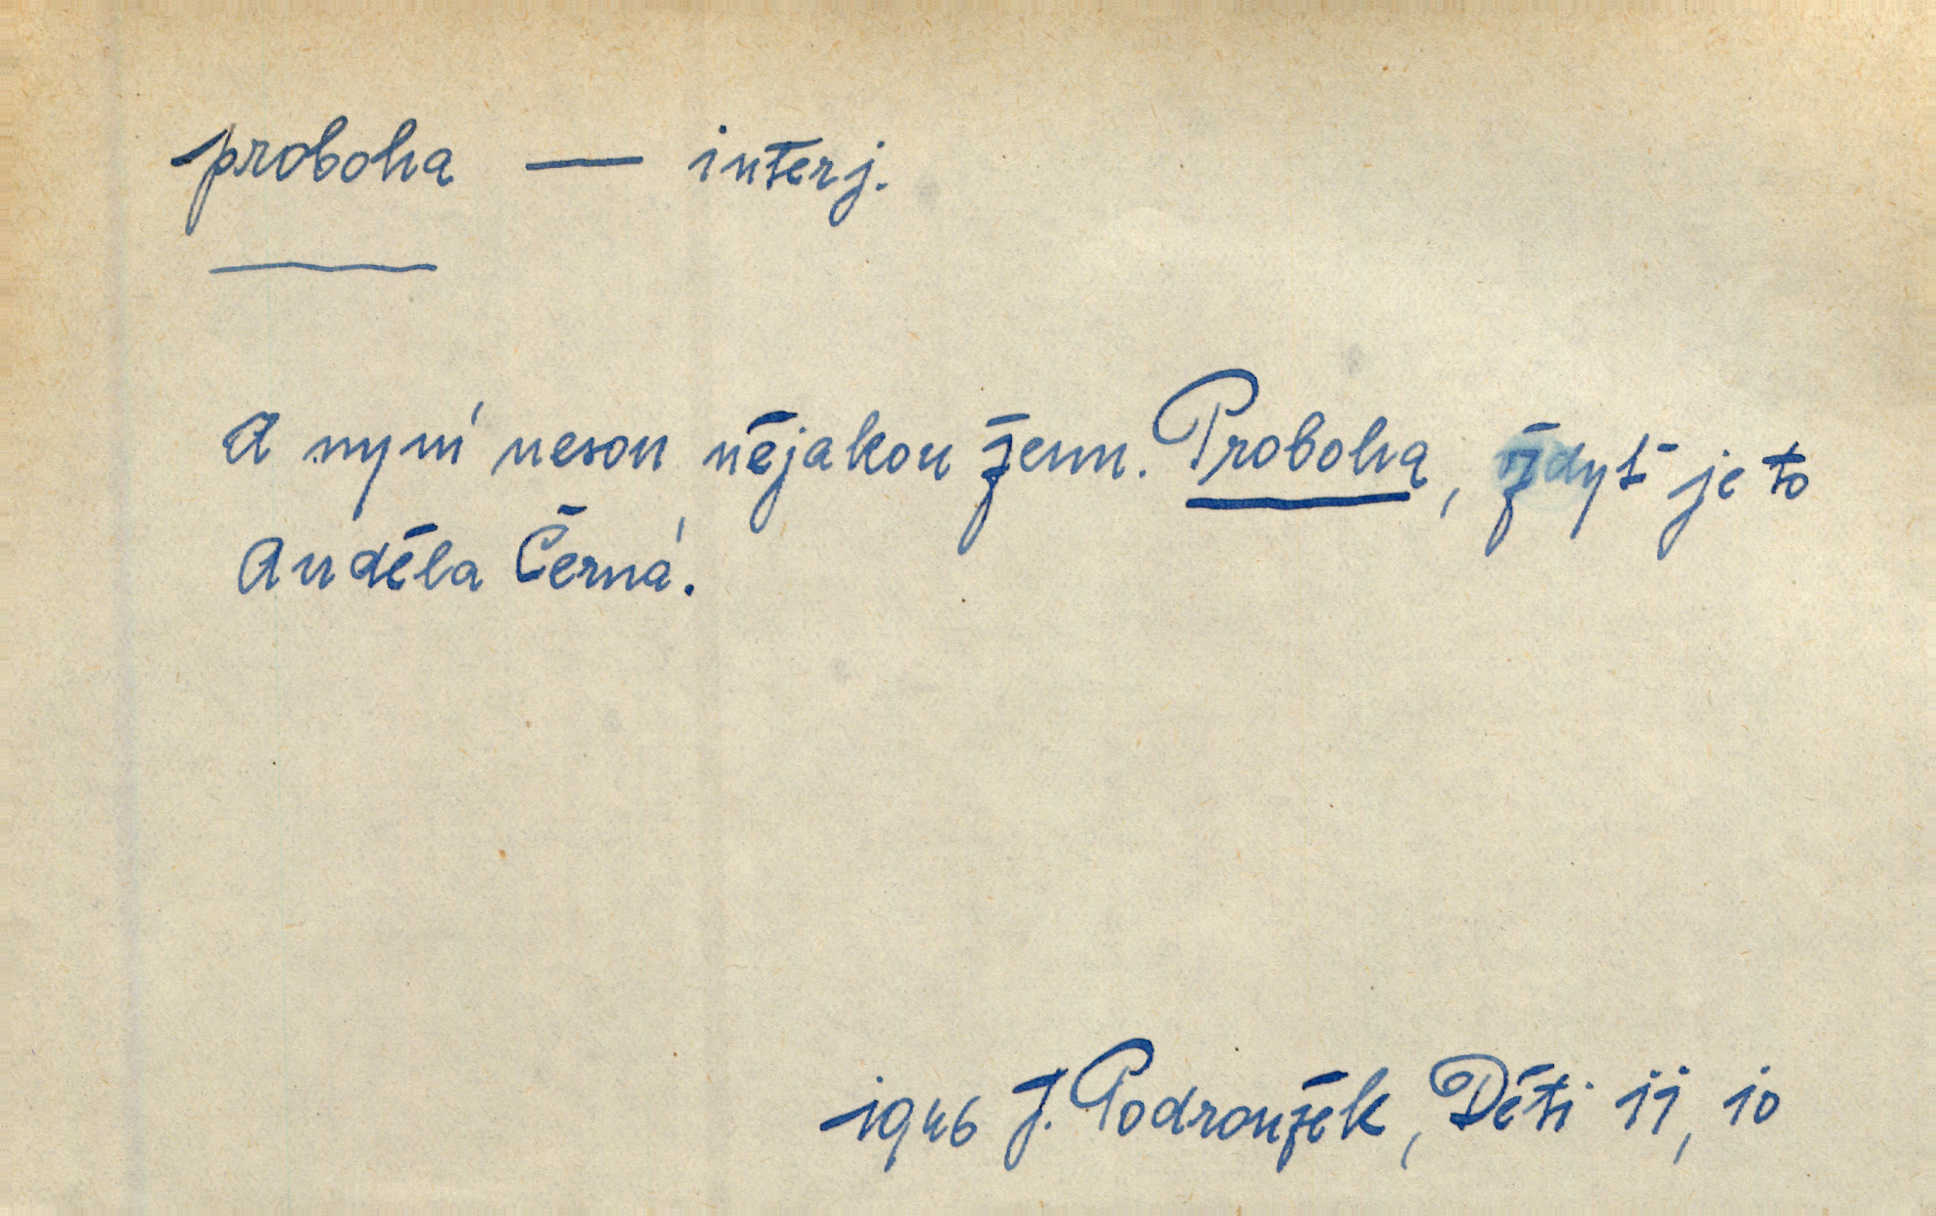 proboha — interj.
A nyní nesou nějakou ženu. Proboha, vždyť je to
Anděla Černá.
1946 J. Podroužek, Děti 11, 10